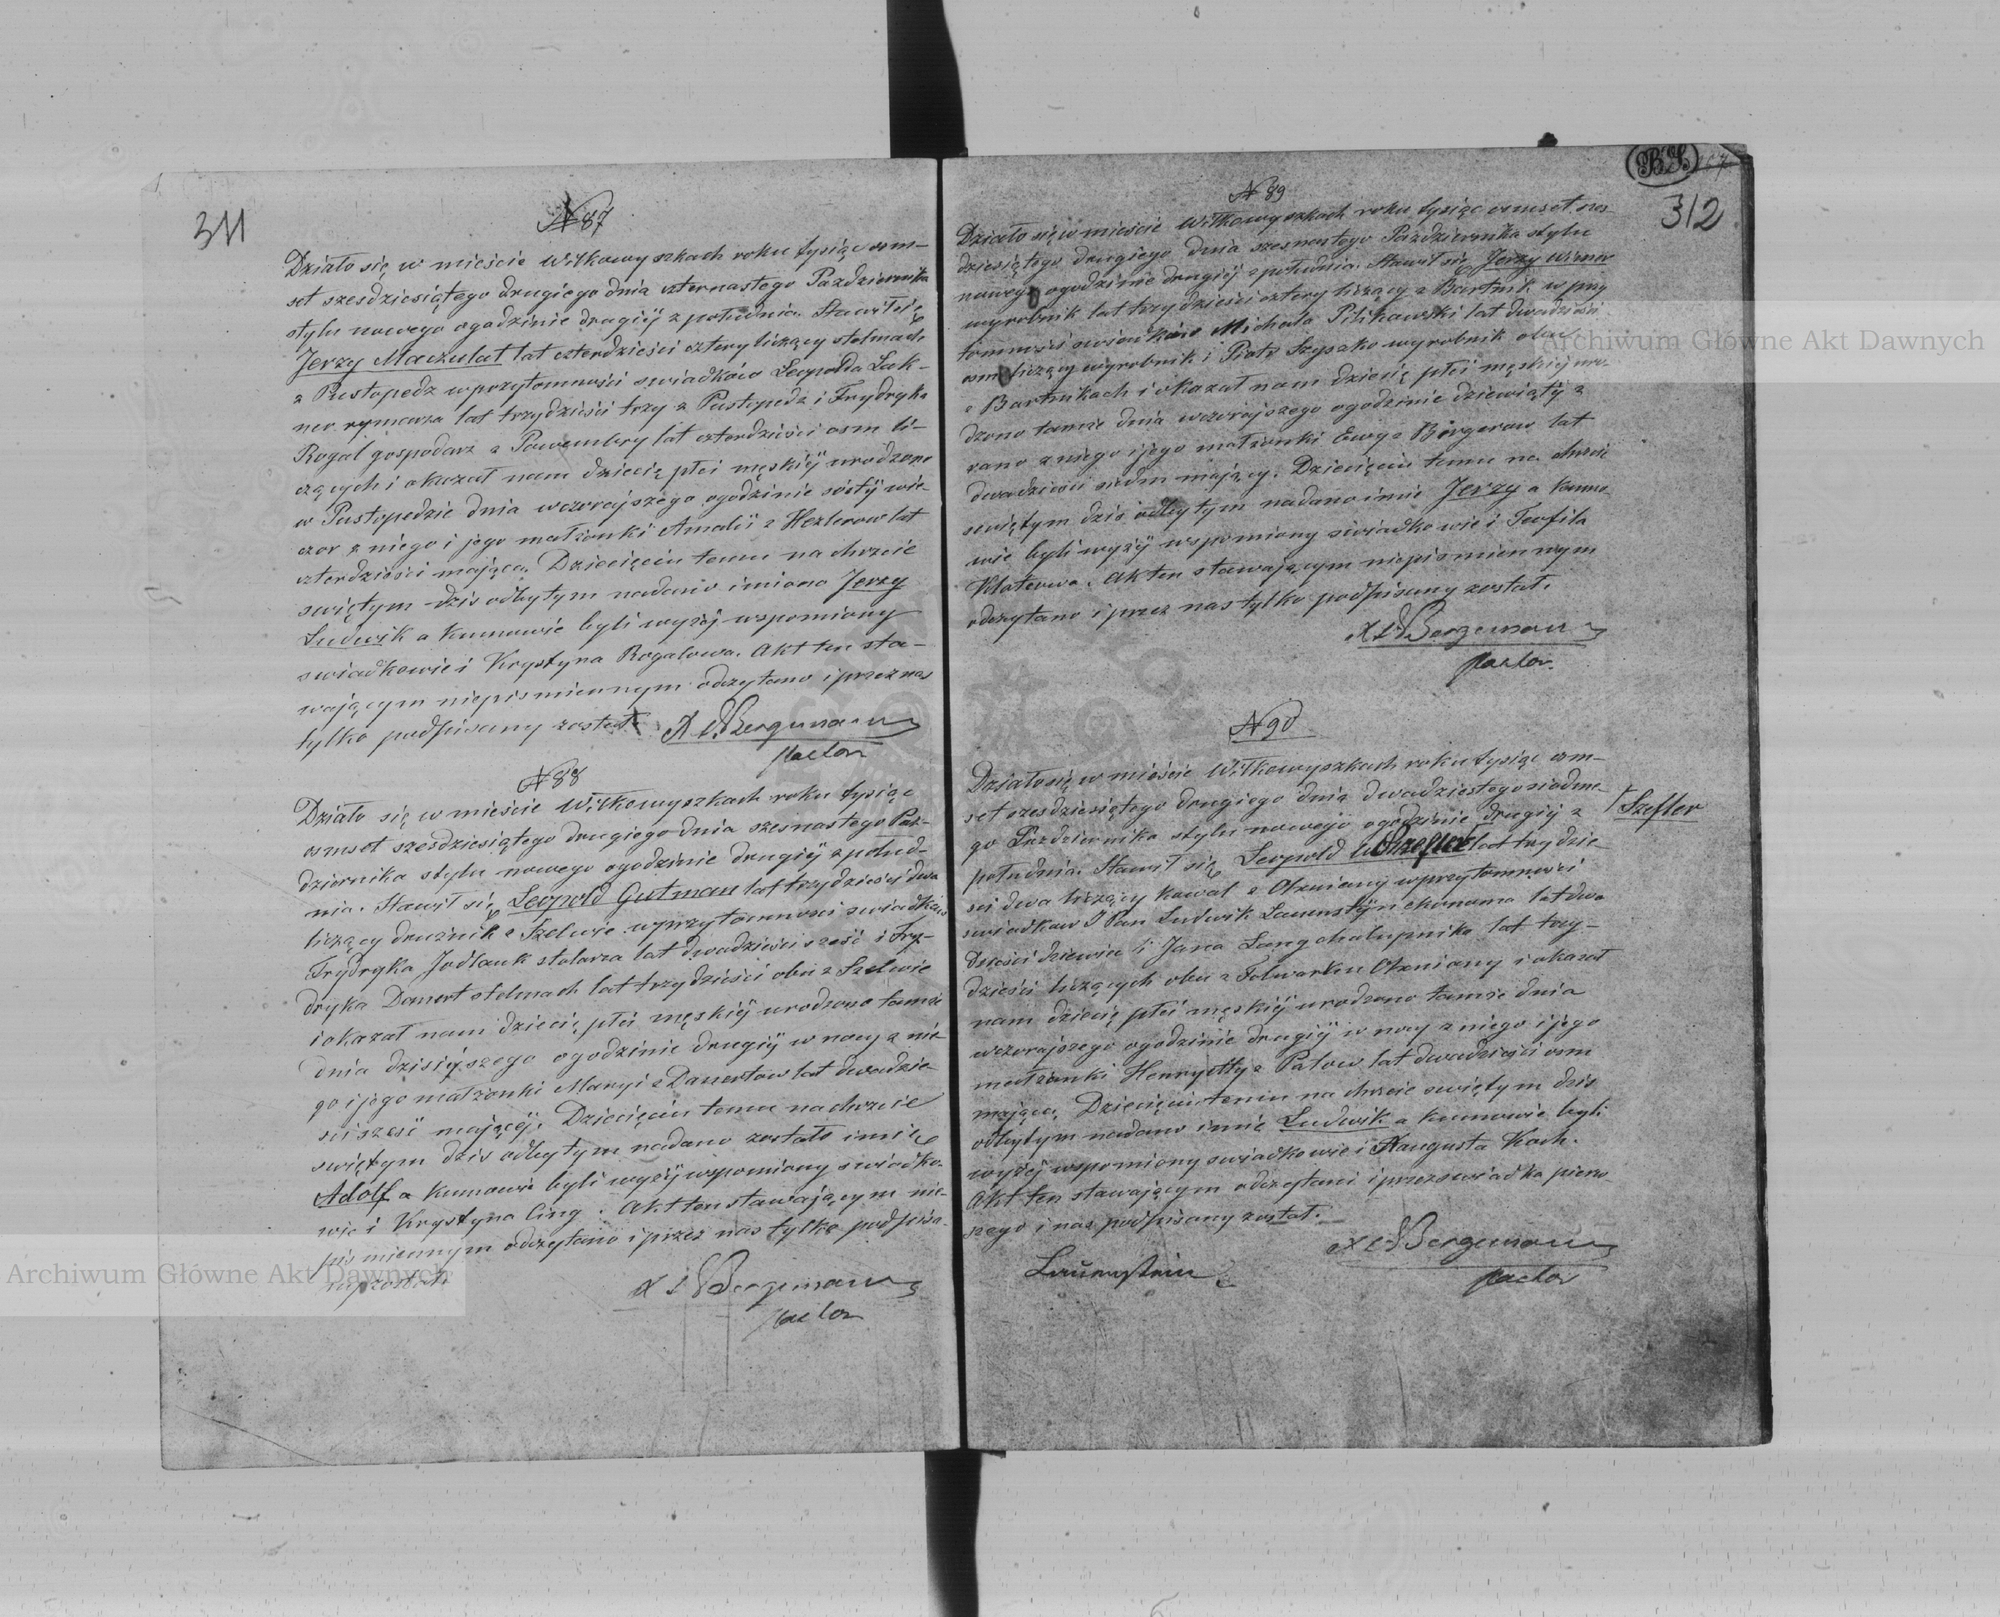 311
N 87
Działo się w mieście Wiłkowyszkach roku tysiąc osm-
set szesdziesiątego drugiego dnia czternastego Pazdziernika
stylu nowego ogodzinie drugiéj z południa. Stawił się
Jerzy Maczulat lat czterdzieści cztery liczący stelmach
z Pustopedz w przytomności swiadków Leopolda Luk-
ner rymarza lat trzydzieści trzy z Pustopedz i Frydryka
Rogal gospodarz z Powembry lat czterdzieści osm li-
czących i okazał nam dziecię płci męskiéj urodzone
w Pustopedzie dnia wczorajszego ogodzinie szóstéj wie-
czor z niego i jego małżonki Amalii z Hezlerow lat
czterdzieści mająca. Dziecięciu temu na chrzcie
swiętym dzis odbytym nadano imiona Jerzy
Ludwik a kumowie byli wyżéj wspomiony
swiadkowie i Krystyna Rogalowa. Akt ten sta-
wającym niepismiennym odczytano i przez nas
tylko podpisany został. X Bergemann
pastor
N 88
Działo się w mieście Wiłkowyszkach roku tysiąc
osmset szesdziesiątego drugiego dnia szesnastego Paz-
dziernika stylu nowego ogodzinie drugiéj z połud-
nia. Stawił się Leopold Gutman lat trzydzieści dwa
liczący drużnik z Szelwie w przytomności swiadków
Frydryka Jodlauk stolarza lat dwadzieścia sześć i Fry-
dryka Danert stelmach lat trzydzieści obu z Szelwie
i okazał nam dziecię płci męskiéj urodzone tamże
dnia dzisiéjszego ogodzinie drugiéj w nocy z nie-
go i jego małżonki Maryi z Danertow lat dwadzie-
ści sześć mającéj. Dziecięciu temu na chrzcie
swiętym dzis odbytym nadano zostało imię
Adolf a kumowie byli wyżéj wspomiony swiadko-
wie i Krystyna Cing. Akt ten stawającym nie-
pismiennym odczytano i przez nas tylko podpisa-
ny został.
X Bergemann
pastor
312
N 89
Działo się w mieście Wiłkowyszkach roku tysiąc osmset szes-
dziesiątego drugiego dnia szesnastego Pazdziernika stylu
nowego ogodzinie drugiéj z południa. Stawił się Jerzy
wyrobnik lat trzydzieści cztery liczący z Bartnik w przy
tomności swiadków Michała Pilikawski lat dwadzieści
osm liczący wyrobnik i Piotr Szyszko wyrobnik oba
z Bartnikach i okazał nam dziecię płci męskiéj uro-
dzono tamże dnia wczorajszego ogodzinie dziewiątéj z
rano z niego i jego małżonki Ewy z Birgerow lat
dwadzieści siedm mający. Dziecięciu temu na chrzcie
swiętym dzis odbytym nadano imie Jerzy a kumo-
wie byli wyżéj wspomiony swiadkowie i Teofila
Platerwa. Akt ten stawającym niepismiennym
odczytano i przez nas tylko podpisany został.
X Bergemann
pastor.
N 90
Działo się w mieście Wiłkowyszkach roku tysiąc osm-
set szesdziesiątego drugiego dnia dwadziestego siodme-
go Pazdziernika stylu nowego ogodzinie drugiéj z
południa. Stawił się Leopold Szefler lat trzydzie-
Szefler
ści dwa liczący kowal z Olxniany w przytomności
swiadkow J Pan Ludwik Lauenstÿn ekonoma lat dwa
dzieści dziewieć i Jana Lang chałupnika lat trzy-
dzieści liczących obu z Folwarku Olxniany i okazał
nam dziecię płci męskiéj urodzono tamże dnia
wczorajszego ogodzinie drugiéj w nocy z niego i jego
małżonki Henryetty z Patow lat dwadzieści osm
mającą. Dziecięciu temu na chrzcie swiętym dzis
odbytym nadano imie Ludwik a kumowie byli
wyżéj wspomiony swiadkowie i Augusta Koch.
Akt ten stawającym odczytani i przez swiadka pierw
szego i nas podpisany został.
X Bergemann
Lauenstein
pastor
Archiwum Główne Akt Dawnych
Archiwum Główne Akt Dawnych